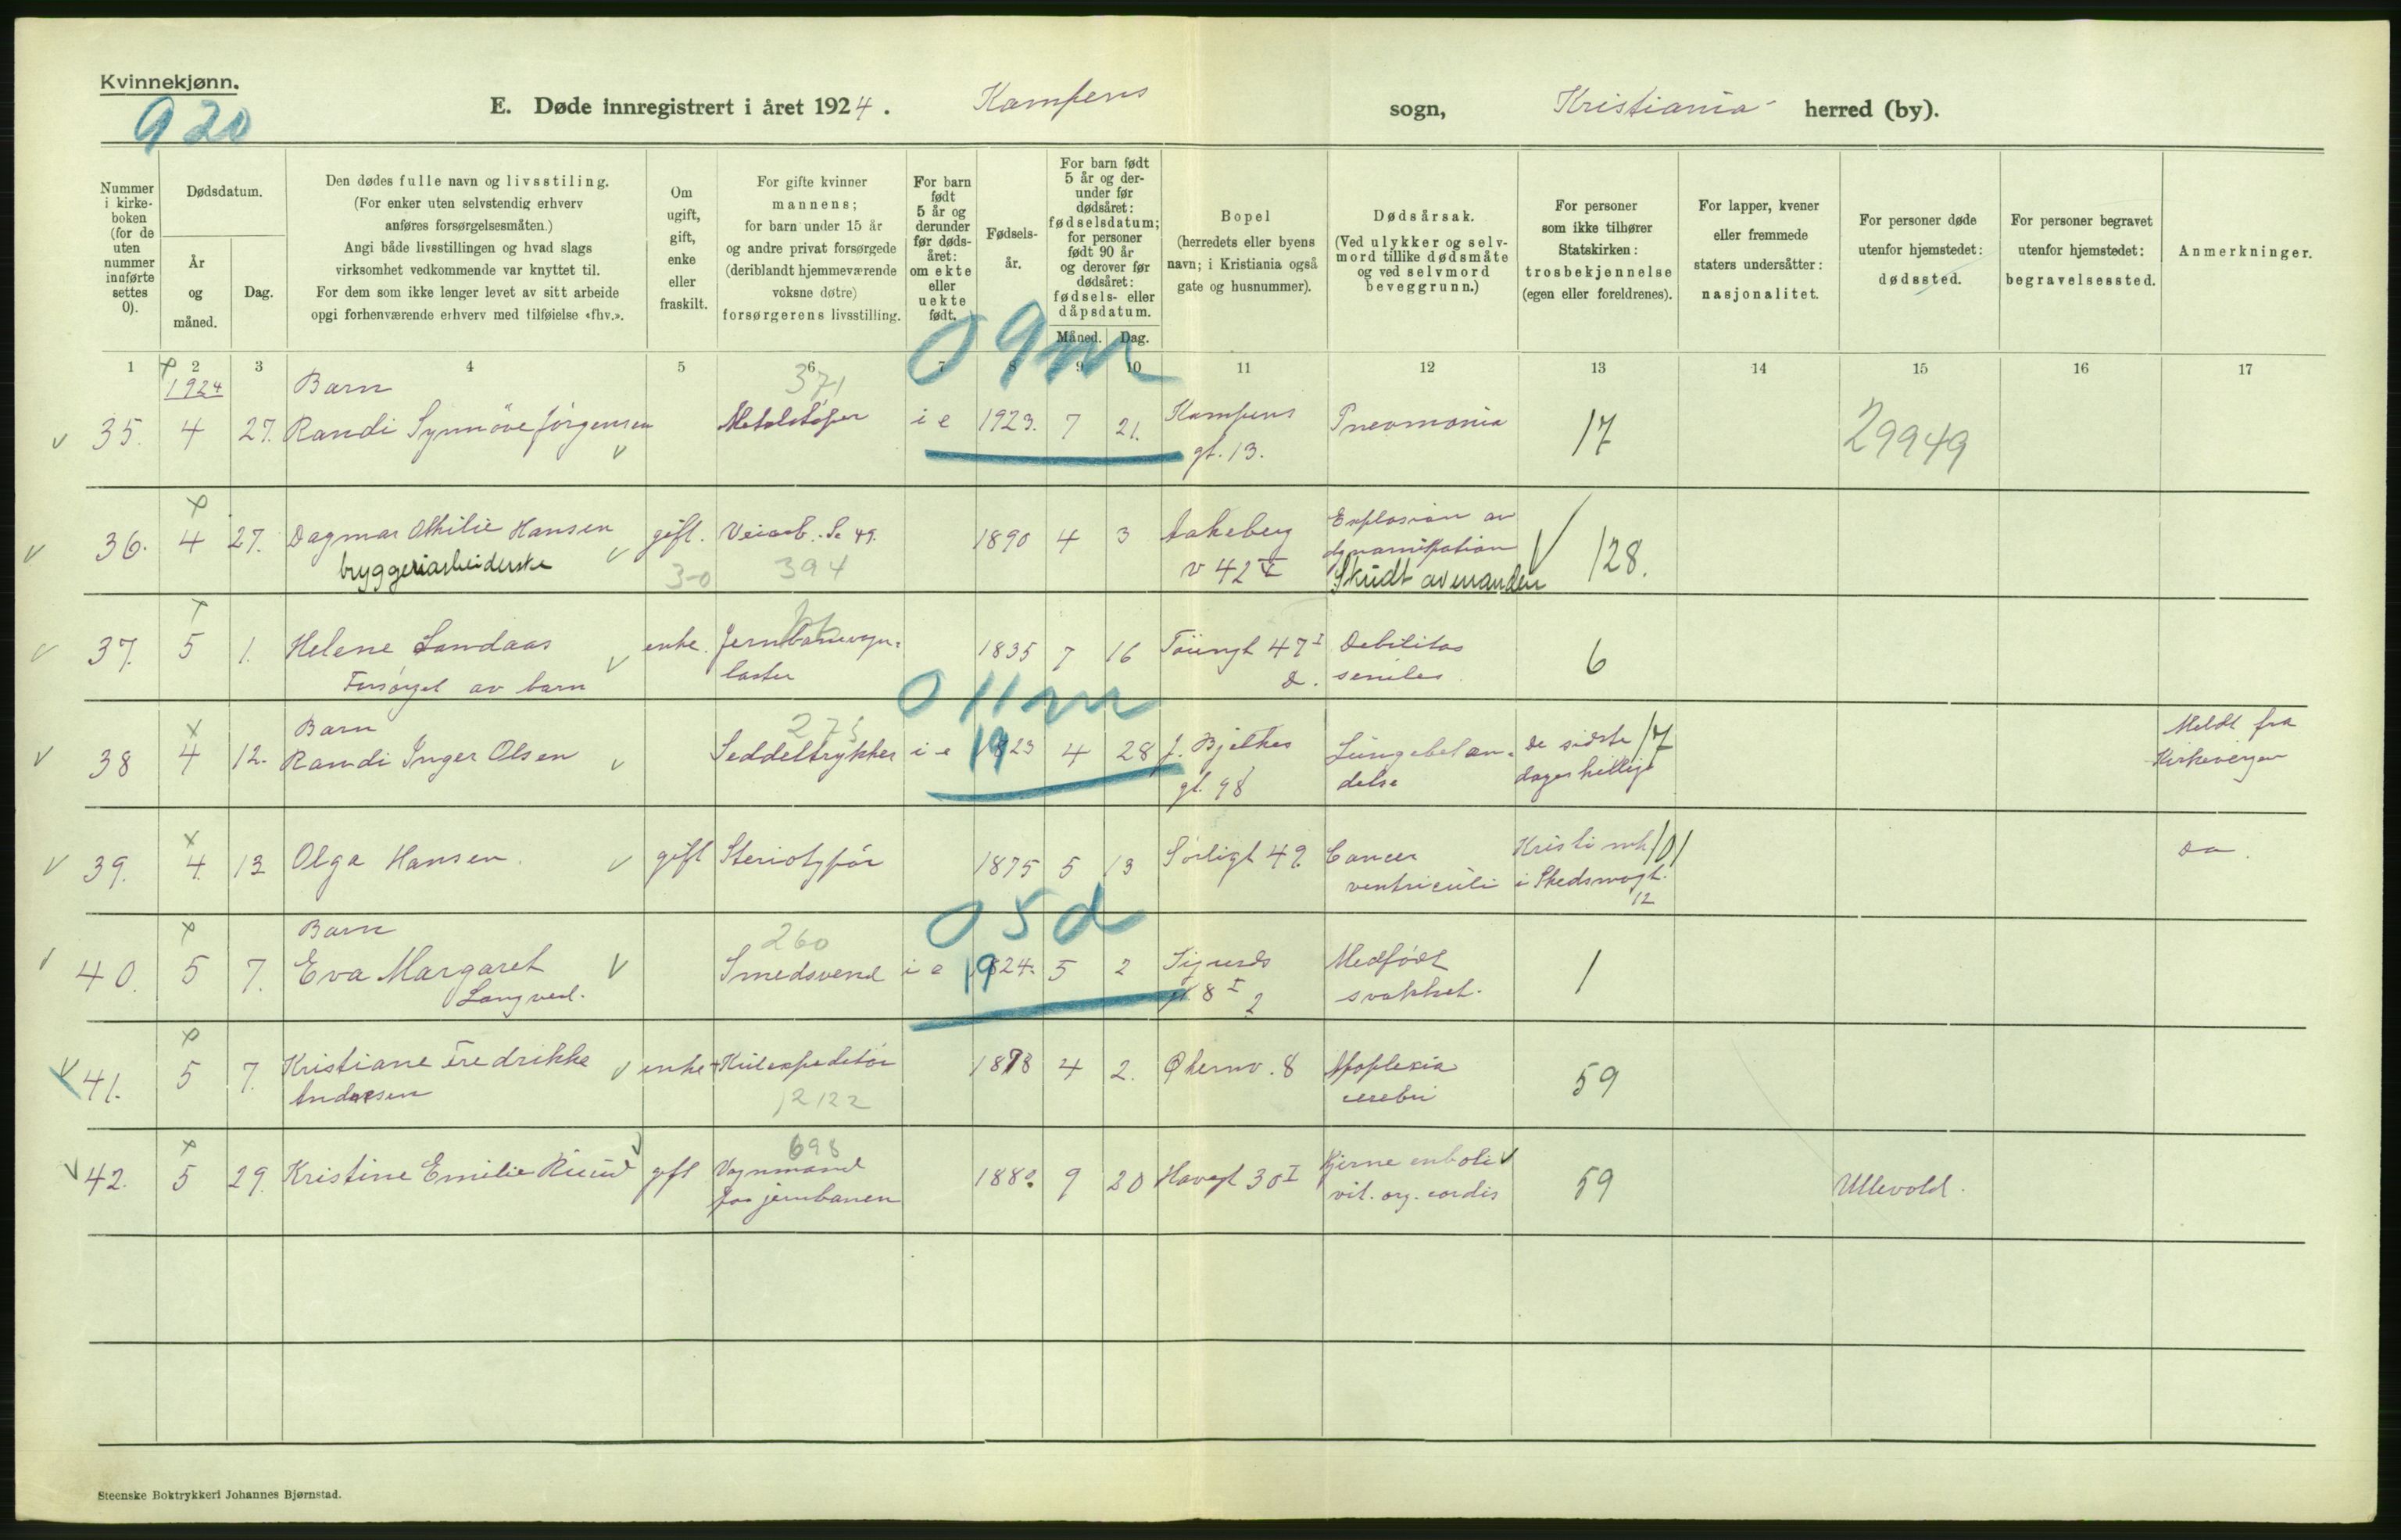 Kvinnekjønn.
920
E. Døde innregistrert i året 1924. Kampens sogn, Kristiania herred (by).
Nummer i kirkeboken (for de uten nummer innførte settes 0).
Dødsdatum.
År og måned.
Dag.
Den dødes fulle navn og livsstiling.
(For enker uten selvstendig erhverv
anføres forsørgelsesmåten.)
Angi både livsstillingen og hvad slags
virksomhet vedkommende var knyttet til.
For dem som ikke lenger levet av sitt arbeide
opgi forhenværende erhverv med tilføielse «fhv.».
Om ugift, gift, enke eller fraskilt.
For gifte kvinner
mannens;
for barn under 15 år
og andre privat forsørgede
(deriblandt hjemmeværende
voksne døtre)
forsørgerens livsstilling.
For barn født 5 år og derunder før dødsåret: om ekte eller uekte født.
Fødselsår.
For barn født 5 år og derunder før dødsåret: fødselsdatum; for personer født 90 år og derover før dødsåret: fødsels- eller dåpsdatum.
Måned. Dag.
Bopel
(herredets eller byens
navn; i Kristiania også
gate og husnummer).
Dødsårsak.
(Ved ulykker og selvmord tillike dødsmåte og ved selvmord beveggrunn.)
For personer
som ikke tilhører
Statskirken:
trosbekjennelse
(egen eller foreldrenes).
For lapper, kvener
eller fremmede
staters undersåtter:
nasjonalitet.
For personer døde
utenfor hjemstedet:
dødssted.
For personer begravet
utenfor hjemstedet:
begravelsessted.
Anmerkninger.
1 2 3 4 5 6 7 8 9 10 11 12 13 14 15 16 17
1924 Barn 371 09m
35. 4 27. Randi Synnöve Jörgensen Metalstøper i e 1923. 7 21. Kampens gt. 13. Pneomonia 17 29949
36. 4 27. Dagmar Othilie Hansen gift. Veiarb. 1890 4 3 Aakeberg v 42 V Explosion av
bryggeriarbeiderske 3-0 394 Skudt av manden 128.
37. 5 1. Helene Landaas enke. Jernbanevogn- 1835 7 16 Töiengt 47 I Debilitas 6
Forsørget av barn laster seniles
011m
Barn 273
38 4 12. Randi Inger Olsen Seddeltrykker i e 1923 4 28 J. Bjelkes gt. 98 Lungebetændelse De sidste dages hellige 17 Meldt fra Kirkevergen
39. 4. 13 Olga Hansen. gift Steriotypör 1875 5 13 Sörligt 49 Cancer ventriculi Kristi mh i Skedsmogt. 12 101 Do.
05d
Barn 260
40. 5 7. Eva Margaret Langved. Smedsvend i e 1924. 5 2 Sigurds gt 8 I 2 Medfödt svakhet. 1
41. 5 7. Kristiane Fredrikke Andersen enke Kulexpeditör 1878 4 2. Økernv. 8 Apoplexia cerebri 59
2122
698
42. 5 29. Kristine Emilie Ruud gift Vognmand 1880 9 20 Havegt 30 I Hjerne emboli 59 Ullevold.
for jernbanen vit. org. cordis
Steenske Boktrykkeri Johannes Bjørnstad.